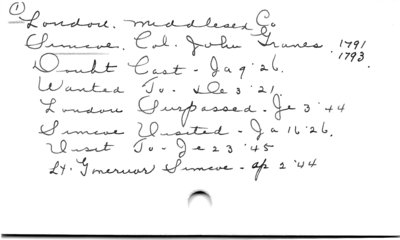 (1)
London. Middlesex Co
Simcoe. Col. John Graves. 1791
1793.
Doubt Cast - Ja 9 '26.
Wanted To - De 3 '21.
London Surpassed - Je 3 '44
Simcoe Visited - Ja 16 '26.
Visit To - Je 23 '45
Lt. Governor Simcoe - Ap 2 '44